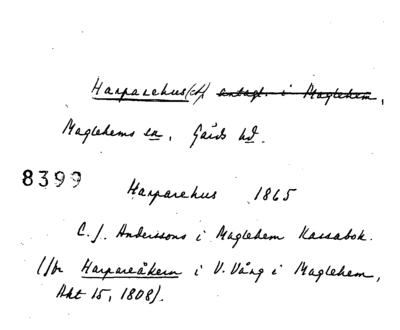 Harparehus(et) antagl. i Maglehem,
Maglehems sn, Gärds hd.
8399
Harparehus 1865
C. J. Anderssons i Maglehem Kassabok.
(Jfr Harpareåkern i V. Vång i Maglehem,
Akt 15, 1808).